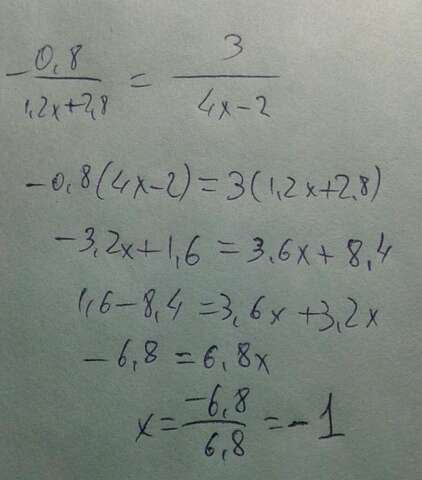 -0,8/(1,2x+2,8) = 3/(4x-2)
-0,8(4x-2)=3(1,2x+2,8)
-3,2x+1,6 = 3,6x+8,4
1,6-8,4 =3,6x+3,2x
-6,8 = 6,8x
x=-6,8/6,8=-1